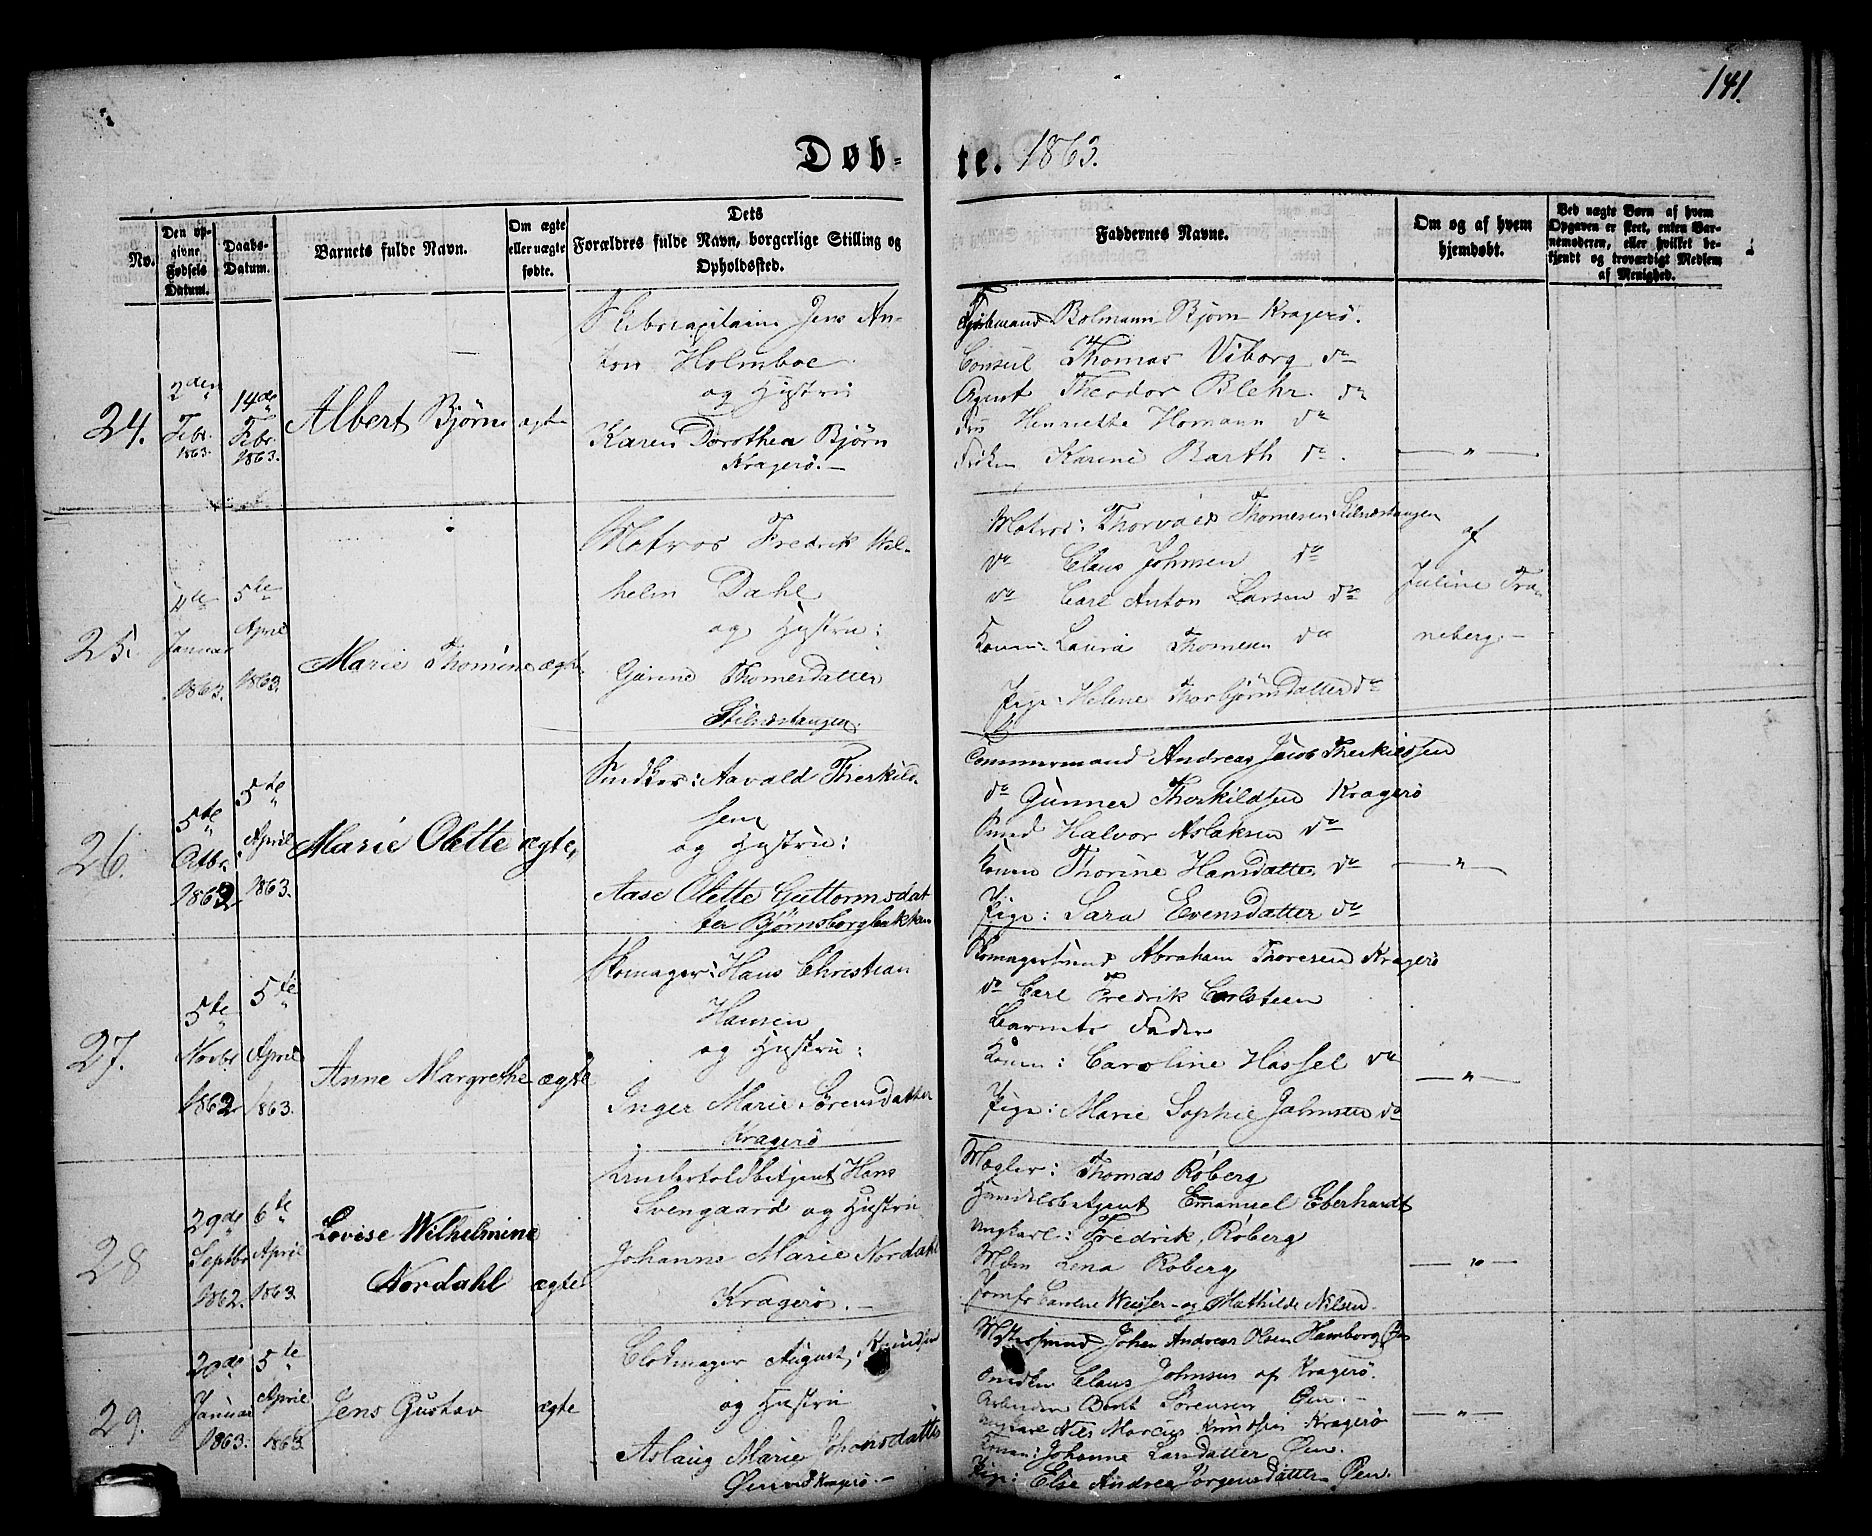 141.
Døb- te. 1863.
No.
Den op-
givne
Fødsels
Datum.
Daabs-
Datum.
Barnets fulde Navn.
Om ægte
eller uægte
fødte.
Dets
Forældres fulde Navn, borgerlige Stilling og
Opholdssted.
Faddernes Navne.
Om og af hvem
hjemdøbt.
Ved uægte Børn af hvem
Opgaven er skeet, enten Bar-
nemoderen, eller hvilket be-
kjendt og troværdigt Medlem
af Menighed.
24.
2den
Febr.
1863.
14de
Febr.
1863.
Albert Bjørn
ægte
Skibscapitain Jens An-
ton Holmboe
og Hustru
Karen Dorothea Bjørn
Kragerø.-
Bolmann Bjørn Kragerø.
Consul Thomas Viborg do
Agent Theodor Blehr. do
Henriette Homann do
Frøken Karine Barth do.
— " —
25.
Januar
1863.
5te
April
1863.
Marie Thomine
ægte
Matros Fredrik Wil-
helm Dahl
og Hustru:
Gurine Thomesdatter
Stilnæstangen.
Matros: Thorvald Thomesen Stilnæstangen
do Claus Johnsen do
do Carl Anton Larsen do
Konen: Laura Thomesen do
Pige: Helene Thorbjørnsdatter do
af
Juline Tra-
neberg.-
26.
5te
Octbr.
1862.
5te
April
1863.
Marie Olette
ægte,
Snedker: Aavald Therkild-
sen
og Hustru:
Aase Olette Guttormsdat
ter Bjørnsborgbakken
Tømmermand Andreas Jacob Therkildsen
do Gunner Therkildsen Kragerø
Halvor Aslaksen do
Konen Thorine Hansdatter do
Pige: Sara Evensdatter do
— " —
27.
5te
Novbr
1862
5te
April
1863.
Anne Margrethe
ægte
Skomager: Hans Christian
Hansen
og Hustru:
Inger Marie Sørensdatter
Kragerø
Skomagersvend Abraham Thoresen Kragerø
do Carl Fredrik Carlsteen
Barnets Fader
Konen: Caroline Hassel do
Pige: Marie Sophie Johnsen do
— " —
28
29de
Septbr
1862.
6te
April
1863.
Lovise Wilhelmine
Nordahl
ægte
Undertoldbetjent Hans
Svengaard og Hustru
Johanne Marie Nordahl
Kragerø.-
Mægler: Thomas Roberg
Handelsbetjent Emanuel Eberhardt
Ungkarl: Fredrik Roberg
Mdm Lena Roberg
Jomfr Caroline Weisser og Mathilde Nilsen.
— " —
29.
20de
Januar
1863.
5te
April
1863.
Jens Gustav
ægte
Blokmager August Knudsen
og Hustru
Aslaug Marie
Øen ved Kragerø.-
Johan Andreas Olsen Hamborg Øen
Snedker Claus Johnsen af Kragerø.
Arbeider Bent Sørensen Øen.-
Ungkarl Nils Marcus Knudsen Kragerø
Konen: Johanne Larsdatter Øen.
Pige: Else Andrea Jørgensdatter Øen.
— " —